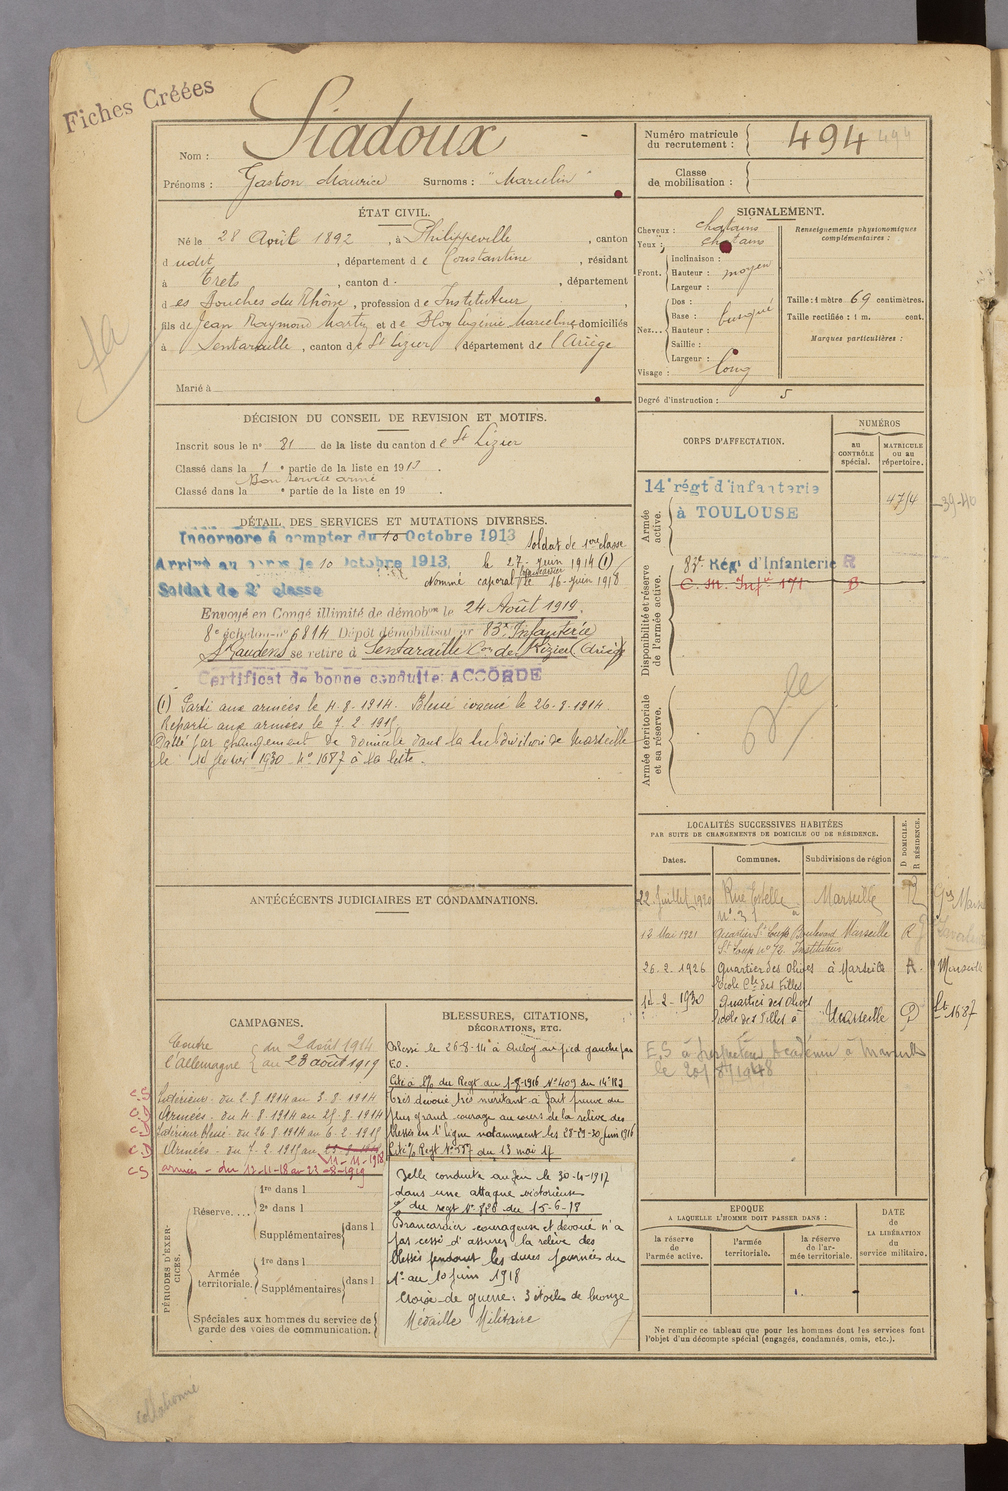 Fiches Créées
Nom : Siadoux
Prénoms : Gaston Maurice Surnoms : "Marcelin"
Numéro matricule du recrutement : 494 494
Classe de mobilisation :
ÉTAT CIVIL.
Né le 28 Août 1892, à Philippeville, canton
dudit, département de Constantine, résidant
à Trets, canton d, département
des Bouches du Rhône, profession de Instituteur,
fils de Jean Raymond Martin et de Bloy Eugénie Marceline domiciliés
à Lentaraille, canton de St Lizier département de l'Ariège
Marié à
SIGNALEMENT.
Cheveux : chatains
Yeux : chatains
Front. Inclinaison :
Hauteur : moyen
Largeur :
Nez... Dos :
Base : busqué
Hauteur :
Saillie :
Largeur :
Visage : long
Renseignements physionomiques complémentaires :
Taille : 1 mètre 69 centimètres.
Taille rectifiée : 1 m. cent.
Marques particulières :
Degré d'instruction : 5
DÉCISION DU CONSEIL DE REVISION ET MOTIFS.
Inscrit sous le n° 81 de la liste du canton de St Lizier
Classé dans la 1e partie de la liste en 1913.
Bon service armé
Classé dans la e partie de la liste en 19 .
DÉTAIL DES SERVICES ET MUTATIONS DIVERSES.
Incorporé à compter du 10 Octobre 1913
Soldat de 1ere classe
Arrivé au corps le 10 Octobre 1913,
le 27 Juin 1914 (1)
Soldat de 2e classe
Nommé caporal le 16 Juin 1918
Envoyé en Congé illimité de démobon le 24 Août 1919.
8e échelon n° 6814 Dépôt démobilisateur 83e Infanterie
St Gaudens se retire à Lentaraille Con de St Lizier (Ariège)
Certificat de bonne conduite: ACCORDÉ
(1) Parti aux armées le 4.8.1914. Blessé évacué le 26-8-1914.
Reparti aux armées le 7.2.1915.
Passé par changement de domicile dans la subdivision de Marseille
le 14 février 1930 N° 1687 à la liste.
CORPS D'AFFECTATION.
NUMÉROS
AU CONTRÔLE spécial.
MATRICULE OU AU répertoire.
Armée active.
14e régt d'infanterie
à TOULOUSE
4714
39-40
Disponibilité et réserve de l'armée active.
83e Régt d'Infanterie R
C. M. Infie 171 B
Armée territoriale et sa réserve.
LOCALITÉS SUCCESSIVES HABITÉES
PAR SUITE DE CHANGEMENTS DE DOMICILE OU DE RÉSIDENCE.
Dates. Communes. Subdivisions de région D DOMICILE. R RÉSIDENCE.
22 Juillet 1920 Rue Estelle n° 31 à Marseille R
12 Mai 1921 Quartier St Loup Boulevard Marseille R
St Loup n° 72 Instituteur
26.2.1926 Quartier des Olives à Marseille R.
Ecole Cle des Filles
14-2-1930 Quartier des Olives
Ecole des Filles à Marseille D
1687
E.S à Inspection Académie à Marseille
le 20/8/1948
ANTÉCÉDENTS JUDICIAIRES ET CONDAMNATIONS.
CAMPAGNES.
Contre l'Allemagne du 2 août 1914
au 23 août 1919
Intérieur du 2.8.1914 au 3.8.1914
Armées du 4.8.1914 au 25.8.1914
Intérieur Blessé du 26.8.1914 au 6.2.1915
Armées du 7.2.1915 au 11-11-1918
armées du 12-11-18 au 23-8-1919
BLESSURES, CITATIONS, DÉCORATIONS, ETC.
Blessé le 26-8-14 à au pied gauche par
E.O.
Cité à l'O du Regt du 1-8-1916 N° 409 du 14e RI
Très dévoué très méritant a fait preuve du
plus grand courage au cours de la relève des
blessés en 1e ligne notamment les 28-29-30 juin 1916
Cité O/ Regt N° 557 du 13 mai 17
Belle conduite au feu le 30-4-1917
dans une attaque victorieuse
du regt N° 828 du 15-6-18
Brancardier courageux et dévoué n'a
pas cessé d'assurer la relève des
blessés pendant les dures journées du
1er au 10 juin 1918
Croix de guerre: 3 étoiles de bronze
Médaille Militaire
PÉRIODES D'EXERCICES.
Réserve....
1re dans l
2e dans l
Supplémentaires dans l
Armée territoriale.
1re dans l
Supplémentaires dans l
Spéciales aux hommes du service de garde des voies de communication.
EPOQUE
A LAQUELLE L'HOMME DOIT PASSER DANS :
la réserve de l'armée active.
l'armée territoriale.
la réserve de l'armée territoriale.
DATE de LA LIBÉRATION du service militaire.
Ne remplir ce tableau que pour les hommes dont les services font
l'objet d'un décompte spécial (engagés, condamnés, omis, etc.).
Collationné